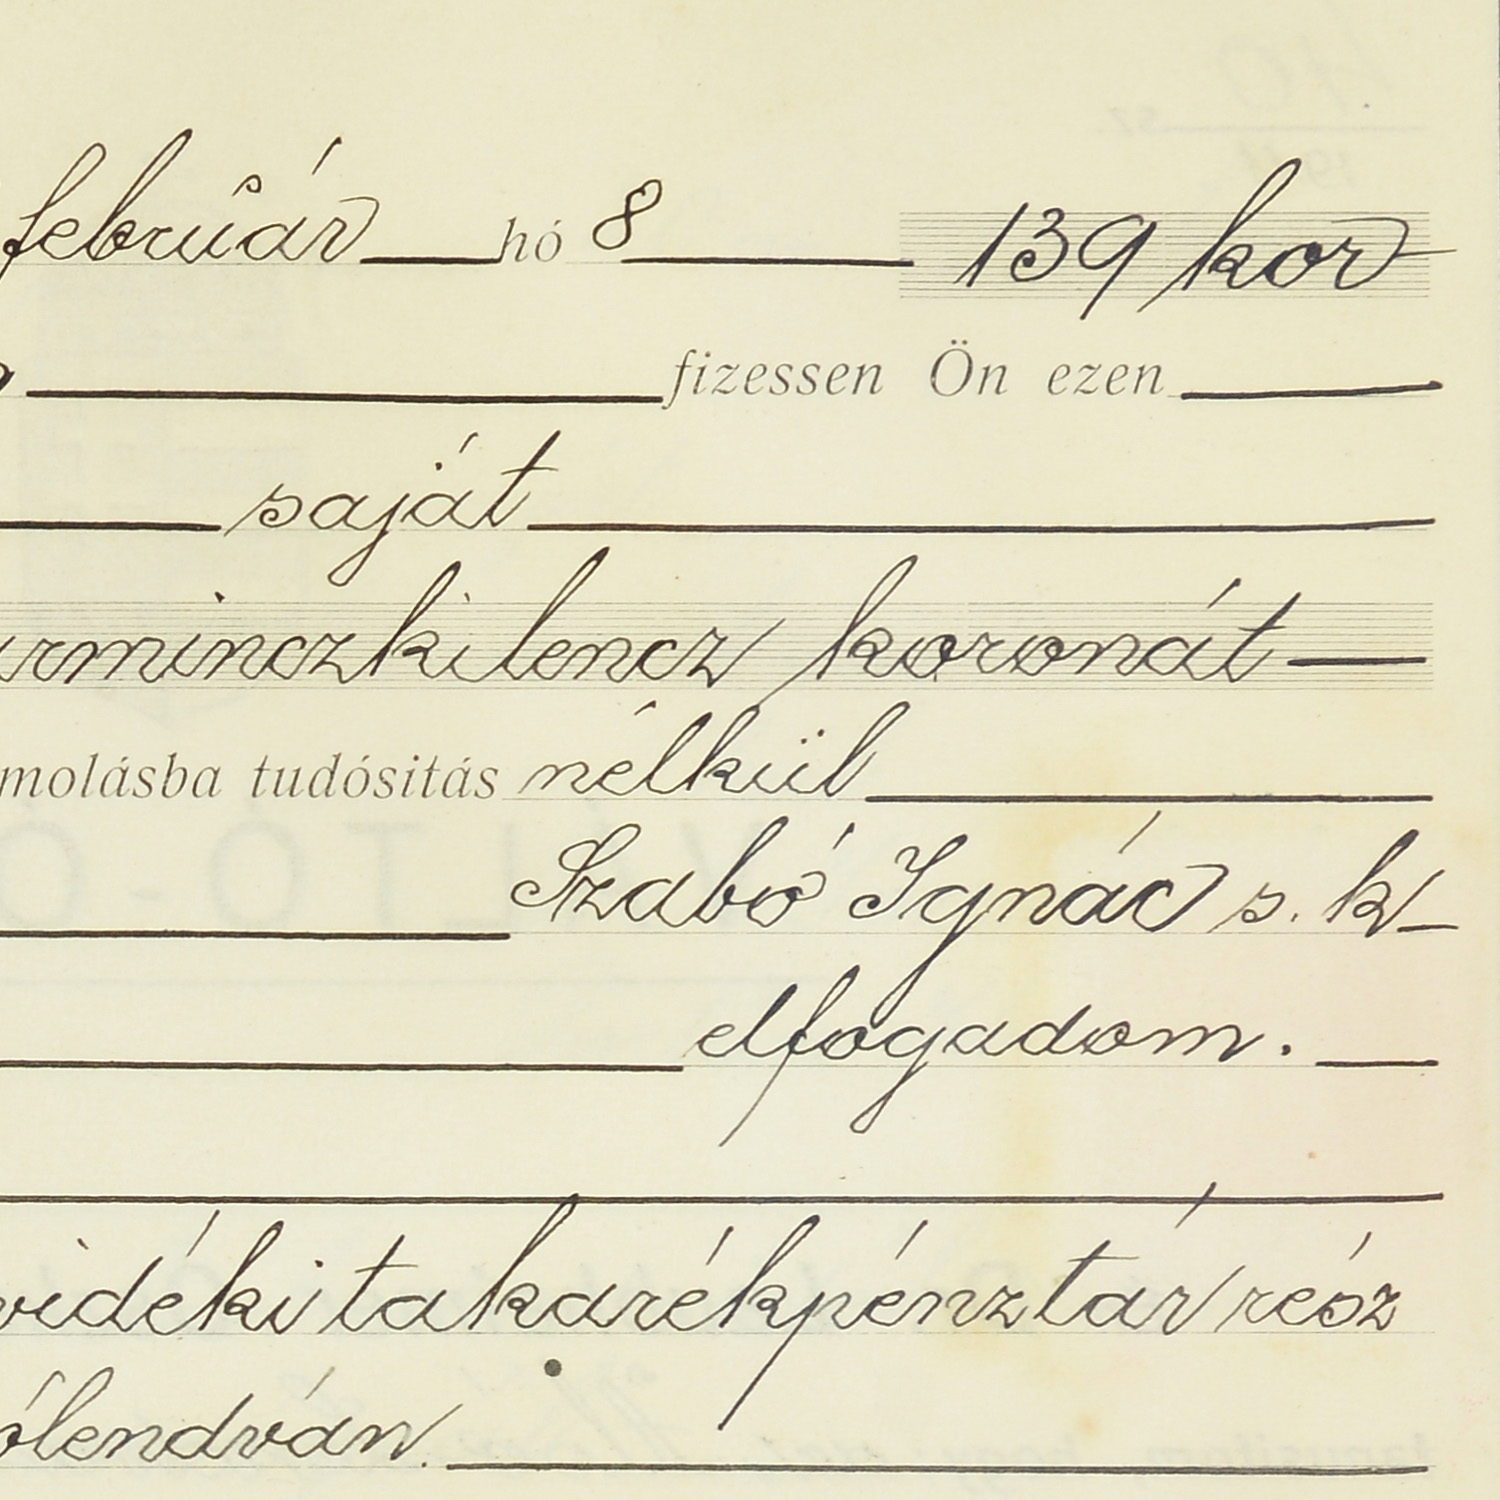 február hó 8 139 kor
fizessen Ön ezen
saját
rminczkilencz koronát
molásba tudósitás nélkül
Szabó Ignác s. k
elfogadom.
vidéki takarékpénztár rész
ólendván.